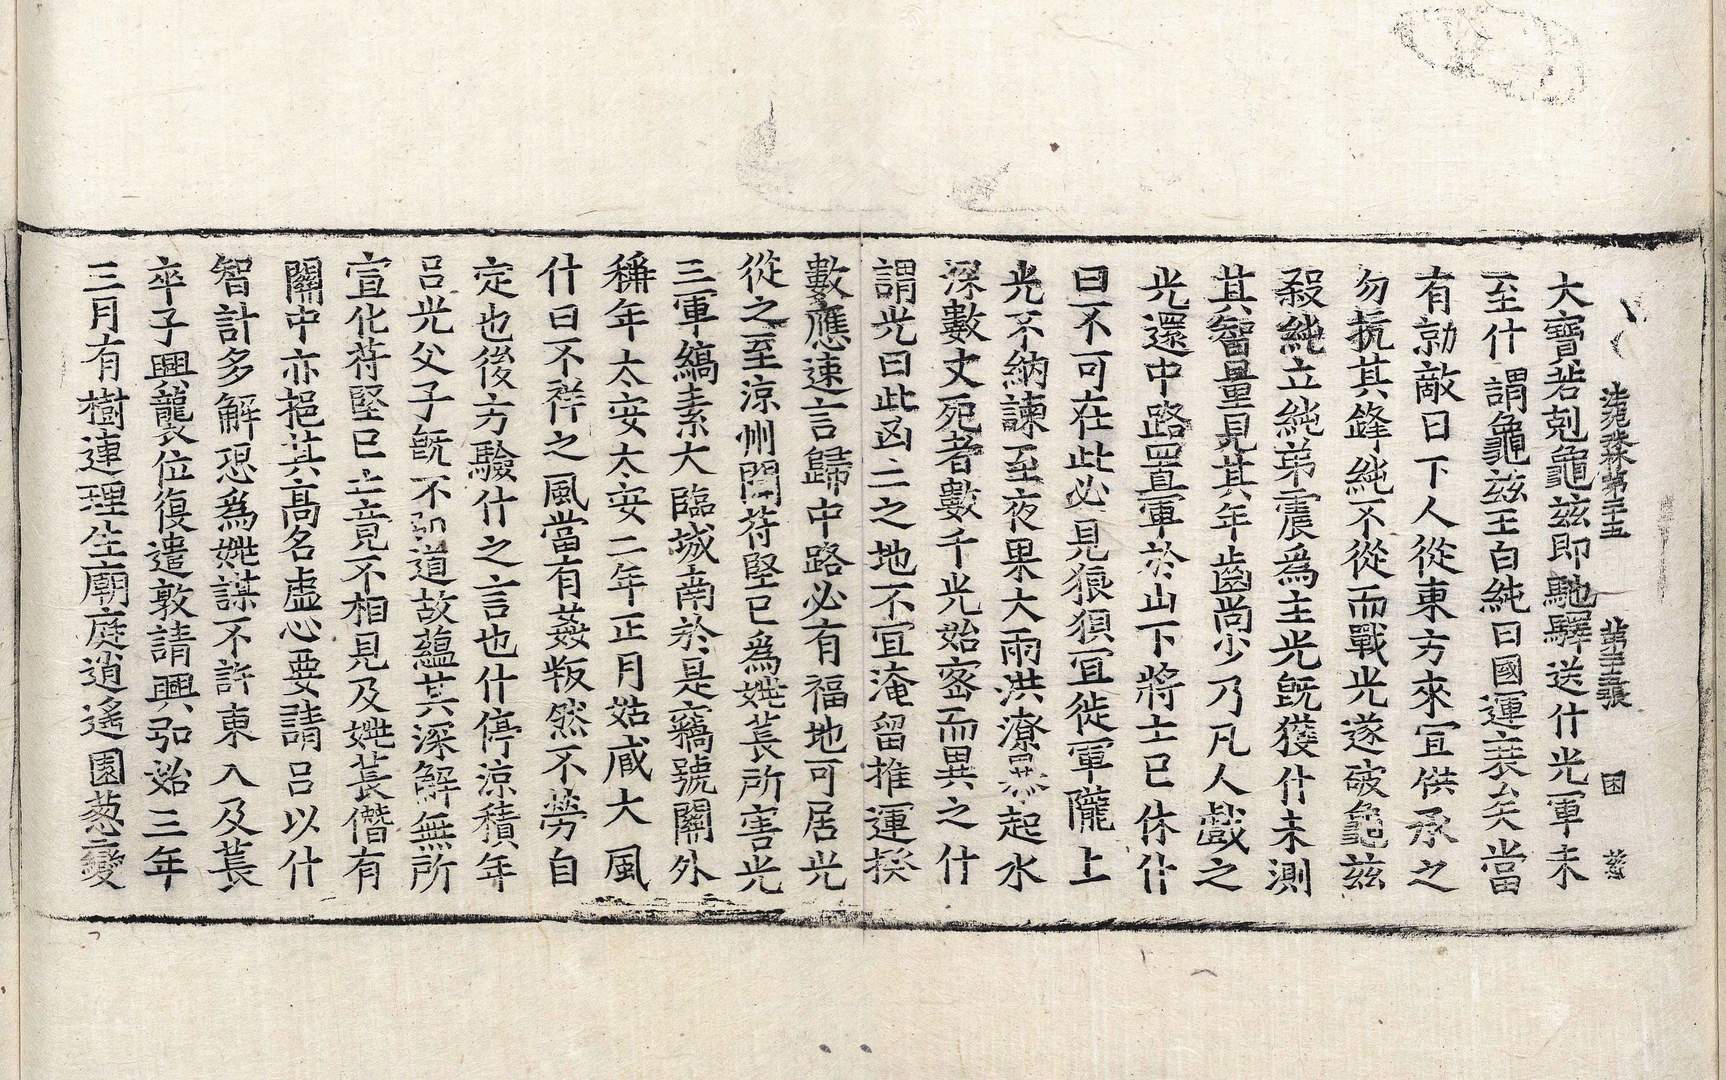 法苑珠林第二十五 第三十三張 困 慈
大寶若剋龜茲即馳驛送什光軍未
至什謂龜茲王白純曰國運衰矣當
有勍敵日下人從東方來宜供承之
勿抗其鋒純不從而戰光遂破龜茲
殺純立純弟震爲主光旣獲什未測
其智量見其年齒尚少乃凡人戲之
光還中路置軍於山下將士已休什
曰不可在此必見狼狽宜徙軍隴上
光不納諫至夜果大雨洪潦暴起水
深數丈死者數千光始密而異之什
謂光曰此凶亡之地不宜淹留推運揆
數應速言歸中路必有福地可居光
從之至涼州聞苻堅已爲姚萇所害光
三軍縞素大臨城南於是竊號關外
稱年太安太安二年正月姑臧大風
什曰不祥之風當有姦叛然不勞自
定也後方驗什之言也什停涼積年
呂光父子旣不弘道故蘊其深解無所
宣化苻堅已亡竟不相見及姚萇僭有
關中亦挹其高名虛心要請呂以什
智計多解恐爲姚謀不許東入及萇
卒子興襲位復遣敦請興弘始三年
三月有樹連理生廟庭逍遙園葱變